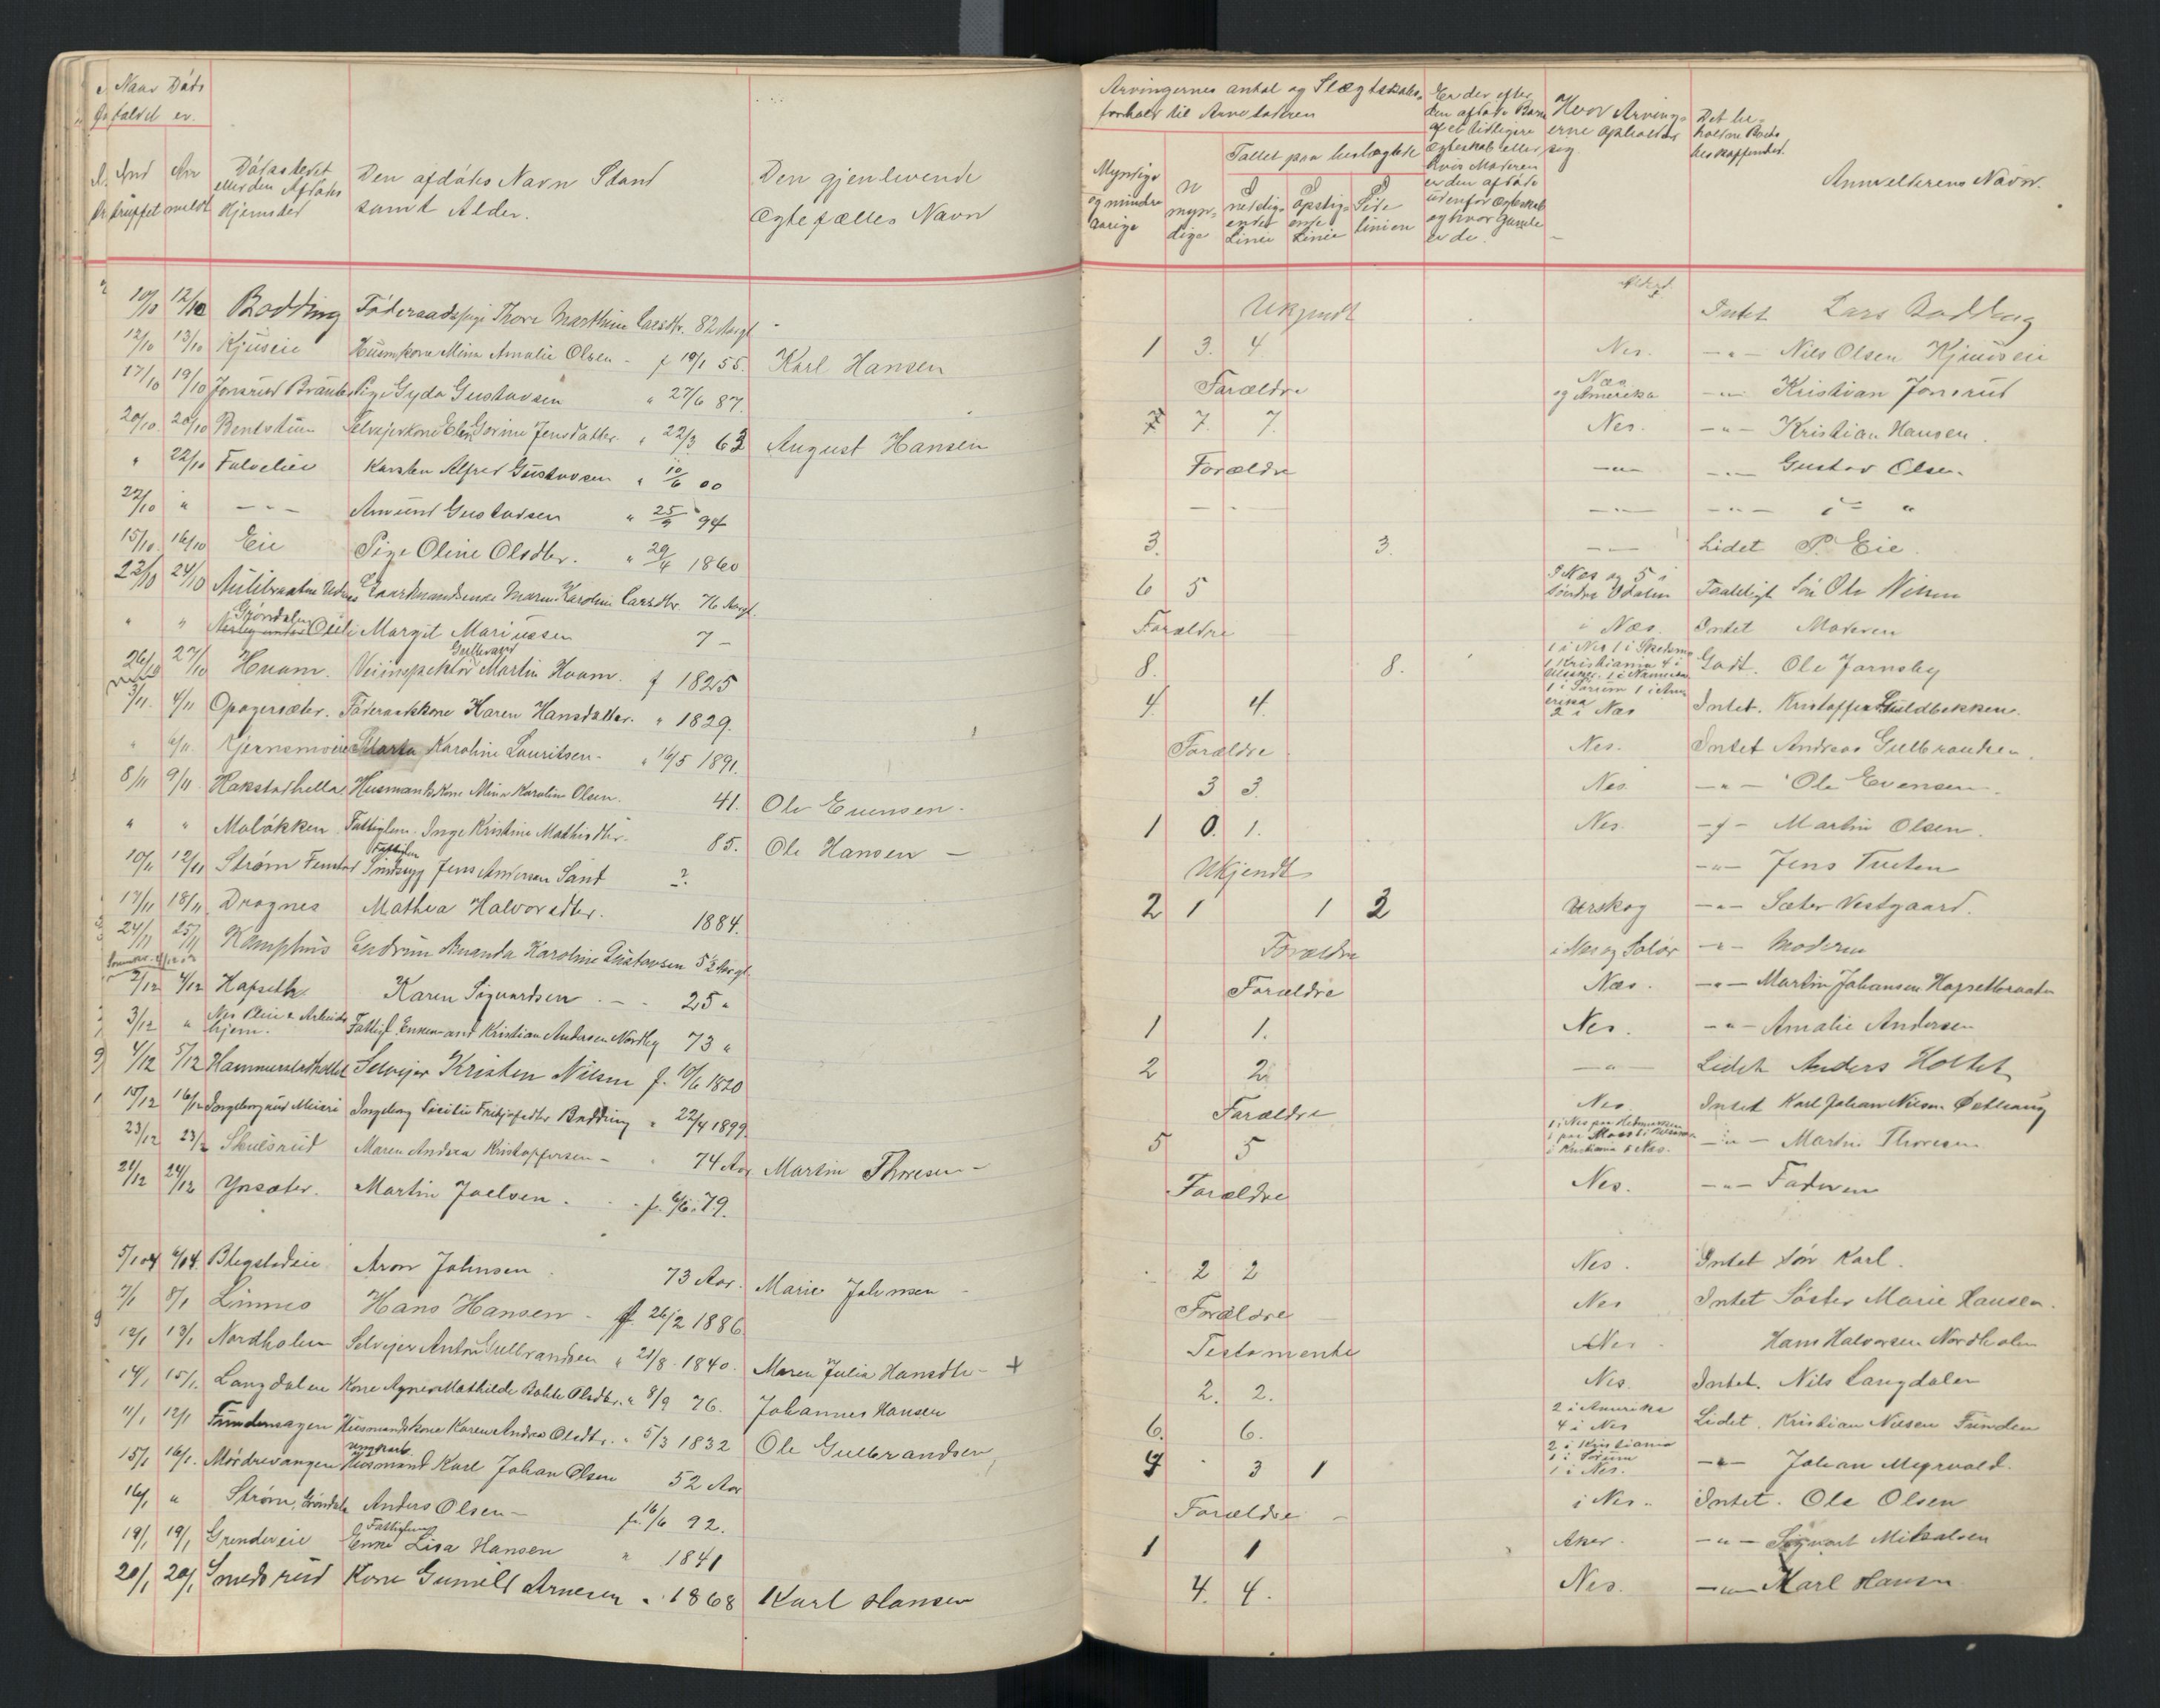 Naar Döds
faldet er.
Ind truffet
An meldt
Dödsstedet
eller den Afdödes
Hjemsted
Den afdödes Navn Stand
samt Alder.
Den gjenlevende
Ægtefælles Navn
Arvingernes antal og Slægtskabs-
forhold til Arveladeren
Myndige
og mindre
aarige
U
myn-
dige
Tallet paa beslægtede
I
nedstig-
ende
Linie
I
opstig-
ende
Linie
I
Side
linien
Er der efter
den afdöde Børn
af et tidligere
Ægteskab eller
hvis Moderen
er den afdöde
udenfor Ægteskab
og hvor Gamle
er de.
Hvor Arving-
erne opholder
sig.
Det be-
holdne Boets
beskaffenhed.
Anmelderens Navn.
10/10 12/10 Bodding Föderaadspige Thore Marthine Larsdtr. 82 Aargl - Ukjendt Intet Lars Bodding
12/10 13/10 Kjuseie Husm.kone Mina Amalie Olsen - f 19/1 55. Karl Hansen 1 3. 4 Nes. -"- Nils Olsen Kjuuseie
17/10 19/10 Jonsrud Pige Gyda Gustavsen " 27/6 87. Forældre Næs og Amerika -"- Kristian Jonsrud
20/10. 20/10 Bentstuen Selvejerkone Elen Gorine Jensdatter. " 22/3 63 August Hansen 7 7. 7. Nes. -"- Kristian Hansen.
" 22/10 Fulueie Karsten Alfred Gustavsen " 10/6 00 Forældre -"- -"- Gustav Olsen
22/10 " -"- Amund Gustavsen " 25/9 94 -"- -"- -"- "
15/10. 16/10 Eie Pige Oline Olsdtr. " 29/4 1860 3. 3. -"- Lidet P. Eie.
23/10 24/10 Gaardmandsenke Maren Karoline Larsdtr. 76 Aargl. 6 5 5 i Søndre Odalen Taaleligt Sön Ole Nilsen
" " Gröndalen Margit Mariussen 7 - Forældre i Næs. Intet Moderen
26/10 27/10 Huam. Veiinspektör Gulbrand Martin Hvam. f 1825 8. 8. 1 i Nes 1 i Skedsmo 1 Kristiania Godt. Ole Jarnsby
3/11. 4/11 Opagersæter. Föderaadskone Karen Hansdatter. " 1829. 4. 4. 1 i Sørum 1 i Amerika 2 i Nes Intet. Kristoffer Guldbekken.
" 6/11. Kjernsmoeie Marta Karoline Lauritsen - " 16/5 1891. Forældre. Nes. Intet Andreas Gulbrandsen.
8/11 9/11. Hakstadhella Husmandskone Mina Karoline Olsen. 41. Ole Evensen. 3 3. Nes. -"- Ole Evensen.
" " Moløkken Fattiglem. Inge Kristine Mathisdtr. 85. Ole Hansen - 1 0. 1. Nes. -"- Martin Olsen.
10/11 12/11 Ström Fenstad Fattiglem Jens Andersen Sand ? Ukjendt -"- Jens Tveten
17/11 18/11. Dragnes Mathea Halvorsdtr. 1884. 2 1 1 2 Urskog -"- Sæter Vestgaard.
24/11 25/11 Kamphus Gudrun Amanda Karoline Gustavsen 5 1/2 Aar gl. Forældre i Nes og Solör -"- Moderen
2/12 4/12 Hapseth Karen Sigvardsen - - 25 " Forældre Næs. -"- Martin Johansen Hapsetbraaten
3/12 " Nes Pleie & Arbeids hjem. Fattigl. Enkemand Kristian Andersen Nordby 73 " 1 1. Nes. -"- Amalie Andersen
4/12 5/12 Hammerstadholtet Selvejer Kristen Nilsen f. 10/6 1820 2 2. -"- Lidet Anders Holtet
15/12 16/12 Ingeborgrud Meieri Ingeborg Sicilie Fritjofsdtr Bodding " 22/4 1899. Forældre Nes Intet Karl Johan Nilsen Østhaug
23/12 23/12 Skulsrud Maren Andrea Kristoffersen - 74 Aar Martin Thoresen - 5 5 -"- Martin Thoresen
24/12 24/12 Ynsæter. Martin Joelsen. f. 6/6. 79. Forældre Nes. -"- Faderen
5/1 04 6/1 04. Blegstadeie Aron Johnsen. 73 Aar. Marie Johnsen - 2 2 Nes. Intet Sön Karl.
7/1 8/1 Linnes Hans Hansen - f. 26/2 1886 Forældre Nes Intet Söster Marie Hansen.
12/1 13/1 Nordholen Selvejer Anton Gulbrandsen " 21/8. 1840. Maren Julia Hansdtr - + Testamente Nes Hans Halvorsen Nordholen
14/1 15/1. Langdalen Kone Agnes Mathilde Olsdtr. " 8/9 76. Johannes Hansen 2. 2. Nes. Intet. Nils Langdalen
11/1 12/1 Fundenhagen Husmandskone Karen Andrea Olsdtr. " 5/3 1832 Ole Gulbrandsen 6. 6. 2 i Amerika 4 i Nes Lidet. Kristian Nilsen Funden
15/1 16/1. Mördrevangen Husmand Karl Johan Olsen 52 Aar 3 1 2 i Kristiania 1 i Sørum 1 i Nes. -"- Johan Myrvold.
16/1 " Ström, Gröndalen Anders Olsen - f. 16/6 92. Forældre - i Nes. Intet. Ole Olsen
19/1 19/1 Grendereie Fattiglem Enke Lisa Hansen " 1841 1 1 Aker. -"- Sigvart Mikalsen
20/1 20/1 Smedsrud Kone Gunild Arnesen " 1868 Karl Hansen 4. 4. Nes. -"- Karl Hansen